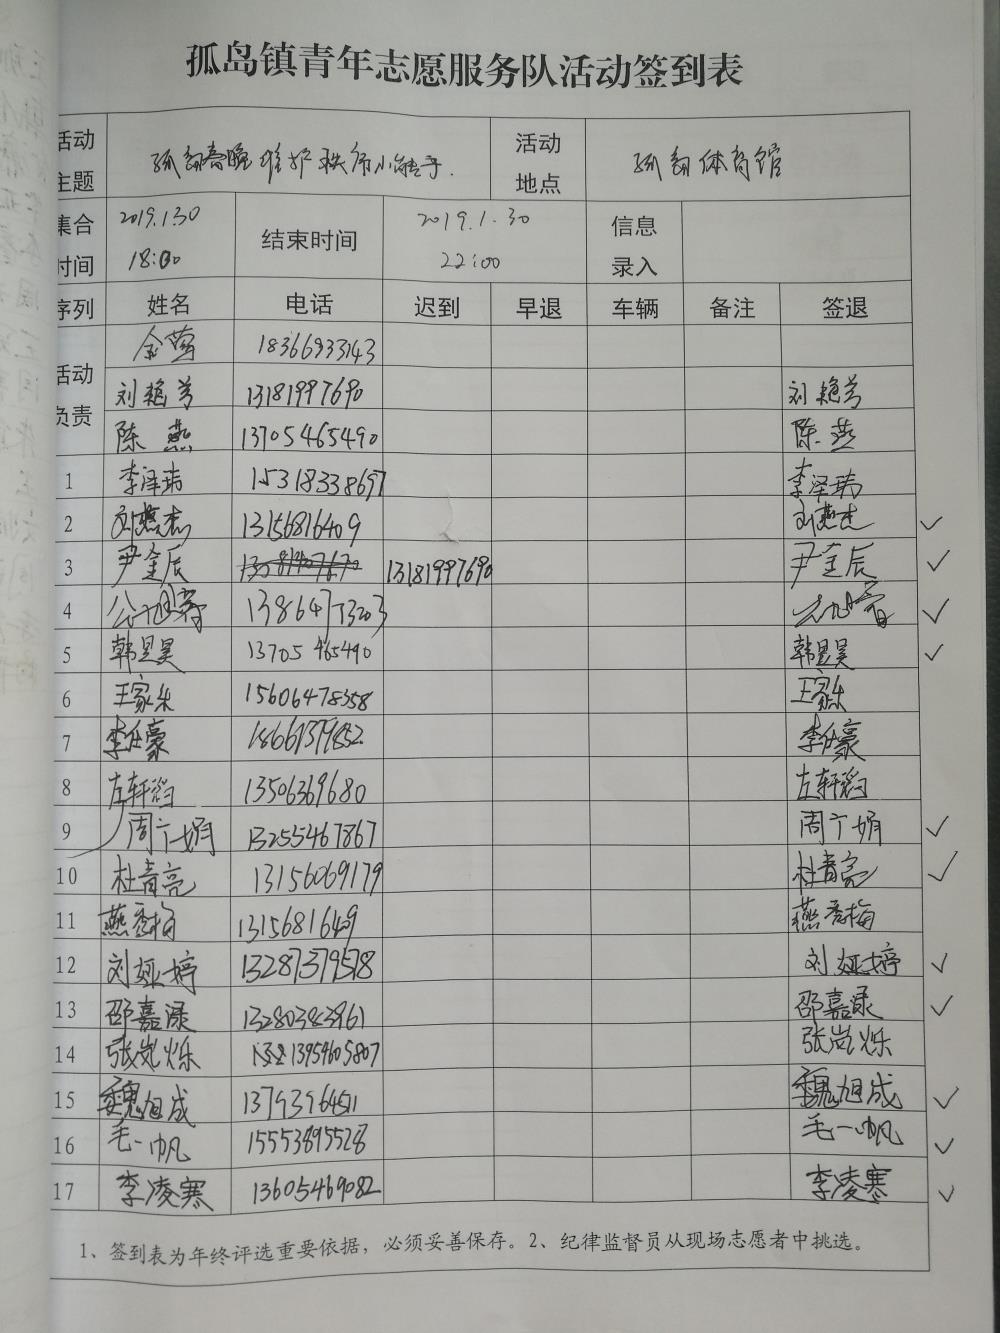 孤岛镇青年志愿服务队活动签到表
活动主题 孤韵春晚维护秩序小能手. 活动地点 孤韵体育馆
集合时间 2019.1.30 18:00 结束时间 2019.1.30 22:00 信息录入
序列 姓名 电话 迟到 早退 车辆 备注 签退
活动负责 金莺 18366933143
刘艳芳 13181997690 刘艳芳
陈燕 13705465490 陈燕
1 李泽玮 15318338697 李泽玮
2 刘燕杰 13156816409 刘燕杰 ✓
3 尹奎辰 13181997690 尹奎辰 ✓
4 ✓
5 韩昱昊 13705465490 韩昱昊 ✓
6 王家乐 15606478358 王家乐
7 李仕豪 李仕豪
8 左轩滔 13506369680 左轩滔
9 周广娟 13255467867 周广娟 ✓
10 杜青亮 13156069179 杜青亮 ✓
11 燕秀梅 1315681649 燕秀梅
12 刘娅婷 13287379578 刘娅婷 ✓
13 邵嘉渌 13280383961 邵嘉渌 ✓
14 张岚烁 13954605807 张岚烁
15 魏旭成 13793964511 魏旭成 ✓
16 毛一帆 15553895528 毛一帆 ✓
17 李凌寒 13605469082 李凌寒 ✓
1、签到表为年终评选重要依据，必须妥善保存。2、纪律监督员从现场志愿者中挑选。